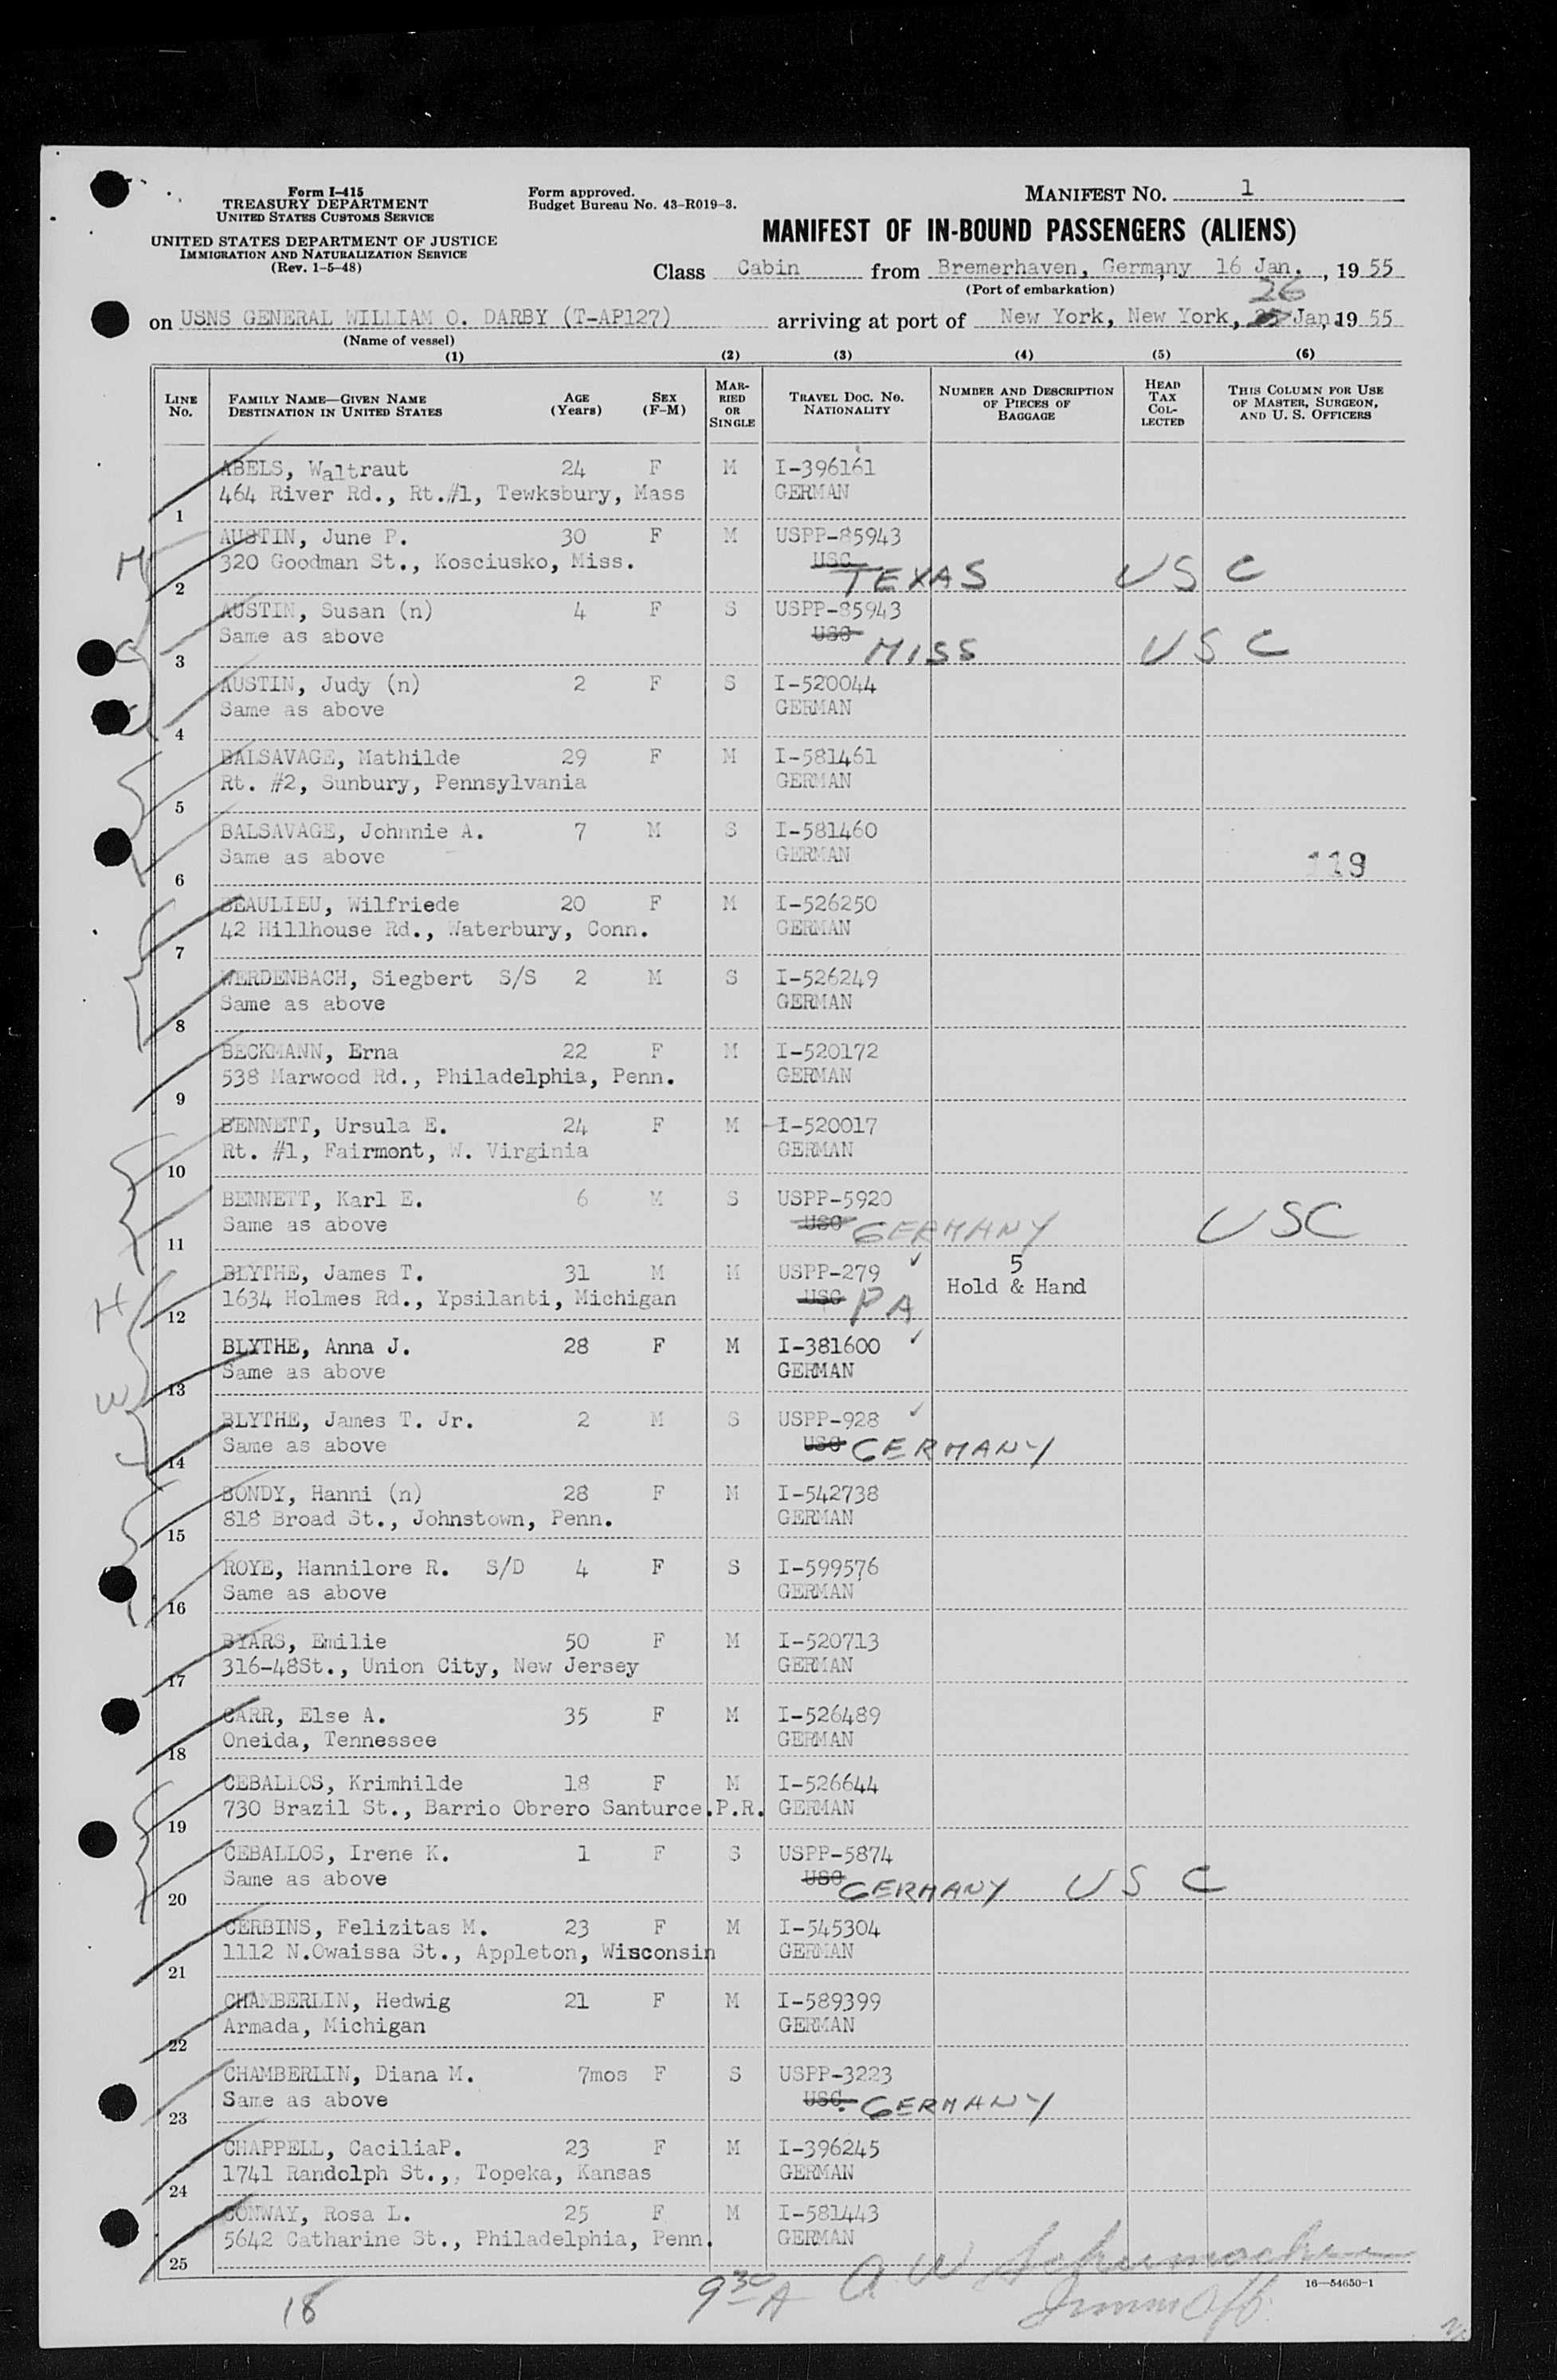 Form I-415
TREASURY DEPARTMENT
UNITED STATES CUSTOMS SERVICE
UNITED STATES DEPARTMENT OF JUSTICE
IMMIGRATION AND NATURALIZATION SERVICE
(Rev. 1-5-48)
Form approved.
Budget Bureau No. 43-R019-3.
MANIFEST NO. 1
MANIFEST OF IN-BOUND PASSENGERS (ALIENS)
Class Cabin from Bremerhaven, Germany 16 Jan., 1955
(Port of embarkation)
26
on USNS GENERAL WILLIAM O. DARBY (T-AP127) arriving at port of New York, New York, Jan, 19 55
(Name of vessel)
(1) (2) (3) (4) (5) (6)
LINE NO. FAMILY NAME—GIVEN NAME DESTINATION IN UNITED STATES AGE (Years) SEX (F-M) MARRIED OR SINGLE TRAVEL DOC. NO. NATIONALITY NUMBER AND DESCRIPTION OF PIECES OF BAGGAGE HEAD TAX COLLECTED THIS COLUMN FOR USE OF MASTER, SURGEON, AND U. S. OFFICERS
ABELS, Waltraut 24 F M I-396161
1 464 River Rd., Rt.#1, Tewksbury, Mass GERMAN
AUSTIN, June P. 30 F M USPP-85943
2 320 Goodman St., Kosciusko, Miss. USC TEXAS USC
AUSTIN, Susan (n) 4 F S USPP-85943
3 Same as above USC MISS USC
AUSTIN, Judy (n) 2 F S I-520044
4 Same as above GERMAN
BALSAVAGE, Mathilde 29 F M I-581461
5 Rt. #2, Sunbury, Pennsylvania GERMAN
BALSAVAGE, Johnnie A. 7 M S I-581460
6 Same as above GERMAN 119
BEAULIEU, Wilfriede 20 F M I-526250
7 42 Hillhouse Rd., Waterbury, Conn. GERMAN
WERDENBACH, Siegbert S/S 2 M S I-526249
8 Same as above GERMAN
BECKMANN, Erna 22 F M I-520172
9 538 Marwood Rd., Philadelphia, Penn. GERMAN
BENNETT, Ursula E. 24 F M I-520017
10 Rt. #1, Fairmont, W. Virginia GERMAN
BENNETT, Karl E. 6 M S USPP-5920
11 Same as above USC GERMANY USC
BLYTHE, James T. 31 M M USPP-279 ✓ 5
12 1634 Holmes Rd., Ypsilanti, Michigan USC PA Hold & Hand
BLYTHE, Anna J. 28 F M I-381600 ✓
13 Same as above GERMAN
BLYTHE, James T. Jr. 2 M S USPP-928 ✓
14 Same as above USC GERMANY
BONDY, Hanni (n) 28 F M I-542738
15 818 Broad St., Johnstown, Penn. GERMAN
ROYE, Hannilore R. S/D 4 F S I-599576
16 Same as above GERMAN
BYARS, Emilie 50 F M I-520713
17 316-48St., Union City, New Jersey GERMAN
CARR, Else A. 35 F M I-526489
18 Oneida, Tennessee GERMAN
CEBALLOS, Krimhilde 18 F M I-526644
19 730 Brazil St., Barrio Obrero Santurce.P.R. GERMAN
CEBALLOS, Irene K. 1 F S USPP-5874
20 Same as above USC GERMANY USC
CERBINS, Felizitas M. 23 F M I-545304
21 1112 N.Owaissa St., Appleton, Wisconsin GERMAN
CHAMBERLIN, Hedwig 21 F M I-589399
22 Armada, Michigan GERMAN
CHAMBERLIN, Diana M. 7mos F S USPP-3223
23 Same as above USC. GERMANY
CHAPPELL, CaciliaP. 23 F M I-396245
24 1741 Randolph St.,, Topeka, Kansas GERMAN
CONWAY, Rosa L. 25 F M I-581443
25 5642 Catharine St., Philadelphia, Penn. GERMAN
16—54650-1
18 9 30 A A W Schumacher
Imm Off.